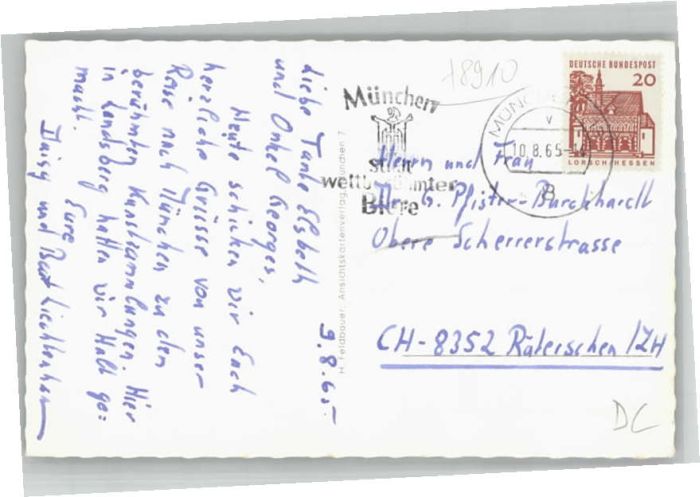 9.8.65.
Liebe Tante Elsbeth
und Onkel Georges,
Heute schicken wir Euch
herzliche Grüsse von unser
Reise nach München zu den
berühmten Kunstsammlungen. Hier
in Landsberg hatten wir Halt ge=
macht.
Eure
und Beat Liechtenhan
H. Feldbauer, Ansichtskartenverlag, München 7
78910
München
Stadt
weltberühmter
Biere
MÜNCHEN
v
10.8.65
B
DEUTSCHE BUNDESPOST
20
LORSCH/HESSEN
Herrn und Frau
Dr. G. Pfister-Burckhardt
Obere Scherrerstrasse
CH-8352 Räterschen/ZH
DC